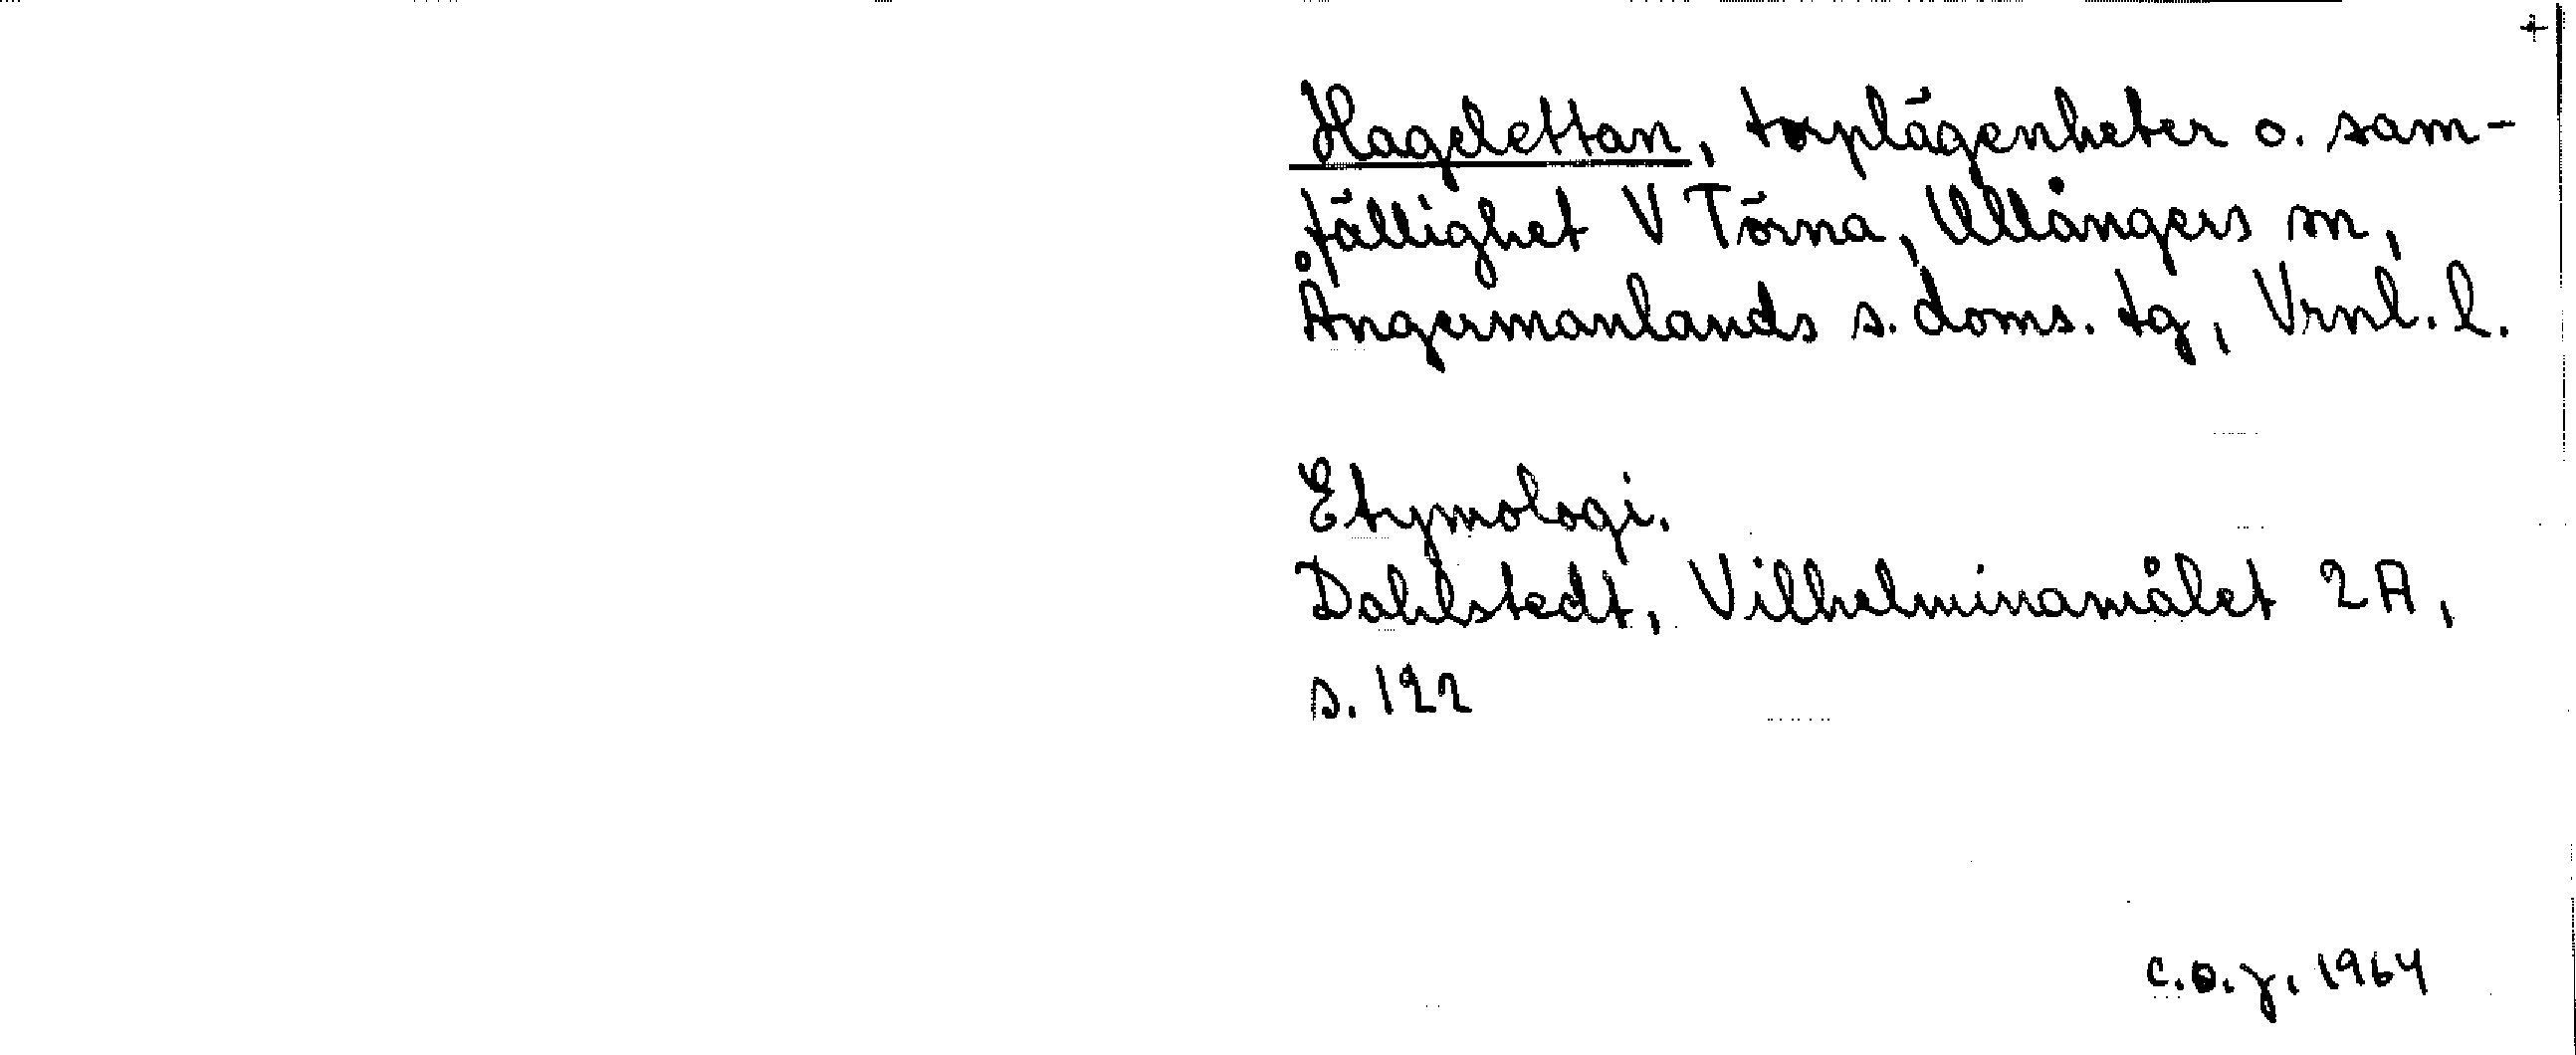 +
Hagelettan, torplägenheter o. sam-
fällighet V Törna, Ullångers sn,
Ångermanlands s. doms. tg, Vrnl. l.
Etymologi.
Dahlstedt, Vilhelminamålet 2A,
s. 122
c.o.j. 1964